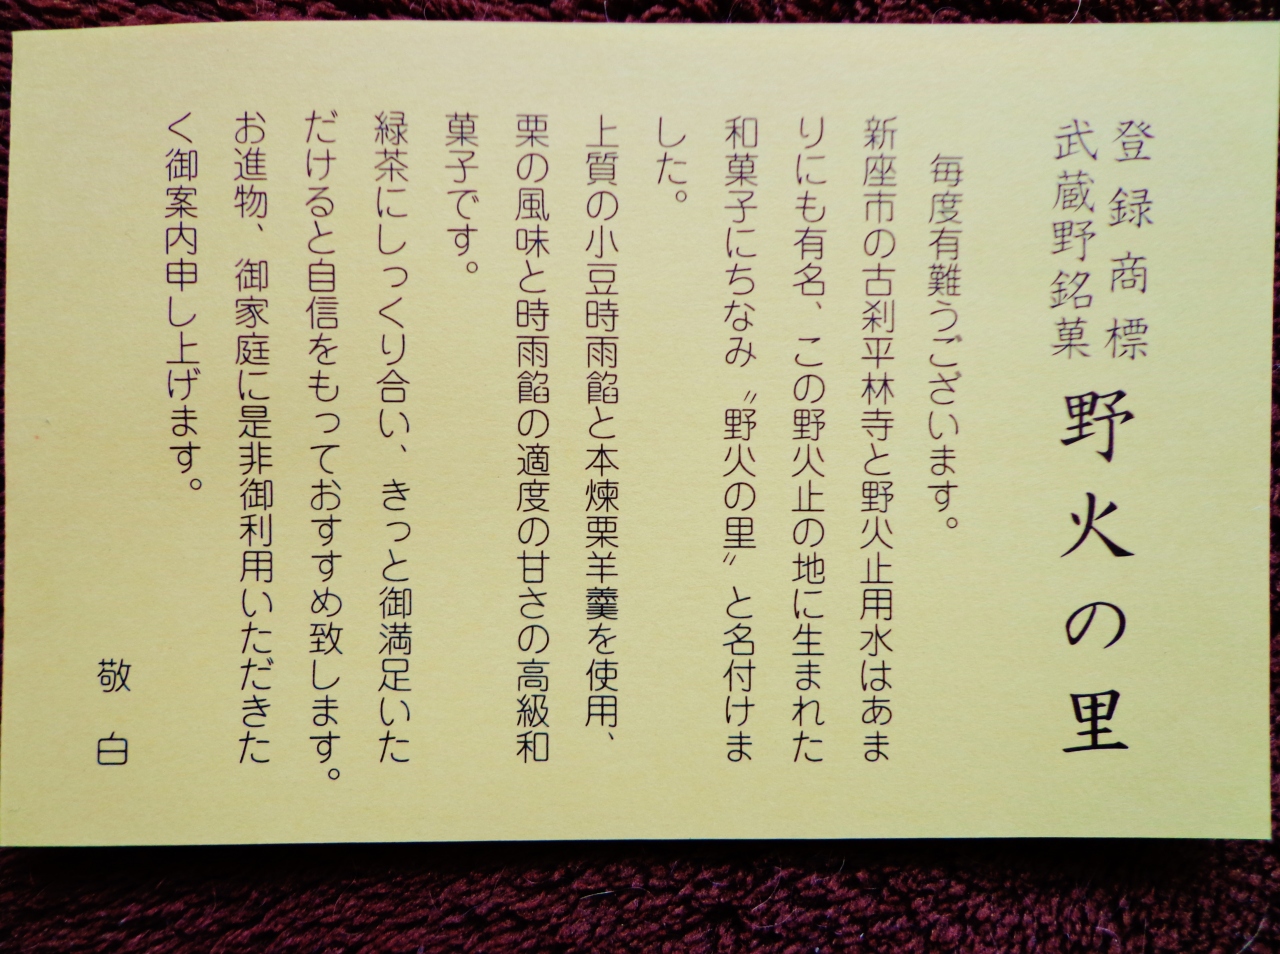 登録商標
武蔵野銘菓
野火の里
毎度有難うございます。
新座市の古刹平林寺と野火止用水はあま
りにも有名、この野火止の地に生まれた
和菓子にちなみ〝野火の里〟と名付けま
した。
上質の小豆時雨餡と本煉栗羊羹を使用、
栗の風味と時雨餡の適度の甘さの高級和
菓子です。
緑茶にしっくり合い、きっと御満足いた
だけると自信をもっておすすめ致します。
お進物、御家庭に是非御利用いただきた
く御案内申し上げます。
敬白